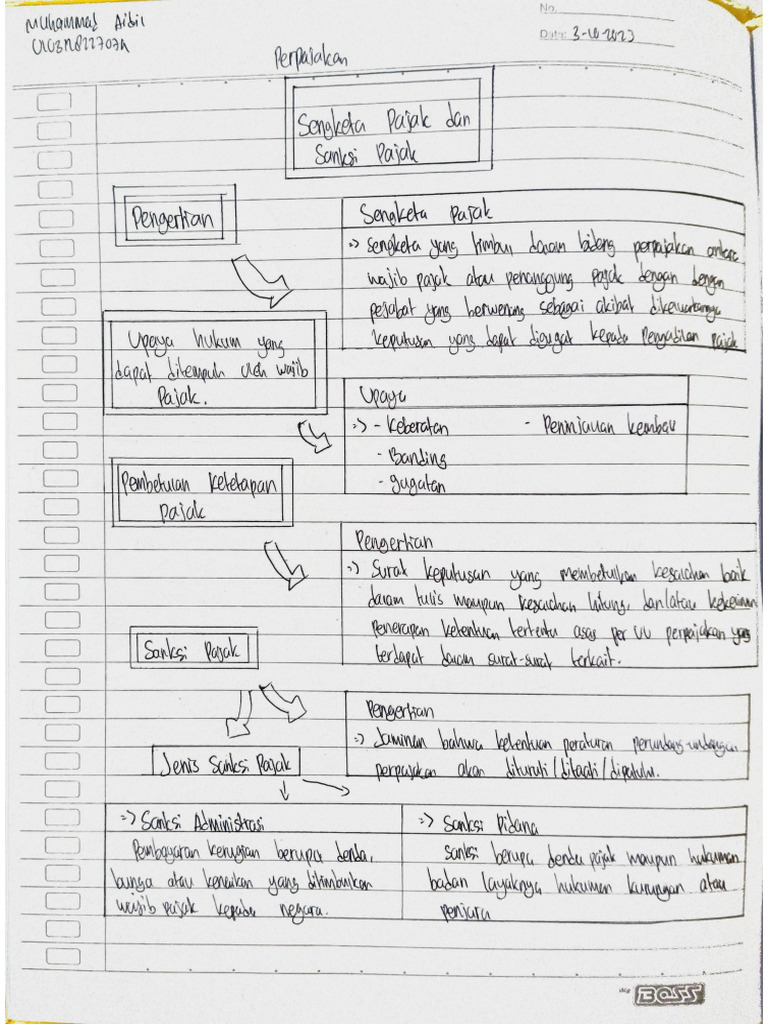 Muhammad Aidil
No.
Date: 3-10-2023
Perpajakan
Sengketa Pajak dan
Sanksi Pajak
Pengertian
Sengketa Pajak
=> Sengketa yang timbul dalam bidang perpajakan antara
wajib pajak atau penanggung pajak dengan dengan
pejabat yang berwenang sebagai akibat dikeluarkannya
keputusan yang dapat digugat kepada Pengadilan pajak
Upaya hukum yang
dapat ditempuh oleh wajib
Pajak.
Upaya
=> - Keberatan - Peninjauan kembali
- Banding
- gugatan
Pembetulan Ketetapan
pajak
Pengertian
=> Surat keputusan yang membetulkan kesalahan baik
dalam tulis maupun kesalahan hitung, dan/atau kekeliruan
Penerapan ketentuan tertentu asas per UU perpajakan yang
terdapat dalam surat-surat terkait.
Sanksi Pajak
Pengertian
=> Jaminan bahwa ketentuan peraturan perundang-undangan
perpajakan akan dituruti/ditaati/dipatuhi.
Jenis Sanksi Pajak
=> Sanksi Administrasi
Pembayaran kerugian berupa denda,
bunga atau kenaikan yang ditimbulkan
wajib pajak kepada negara.
=> Sanksi Pidana
Sanksi berupa denda pajak maupun hukuman
badan layaknya hukuman kurungan atau
penjara
BOSS